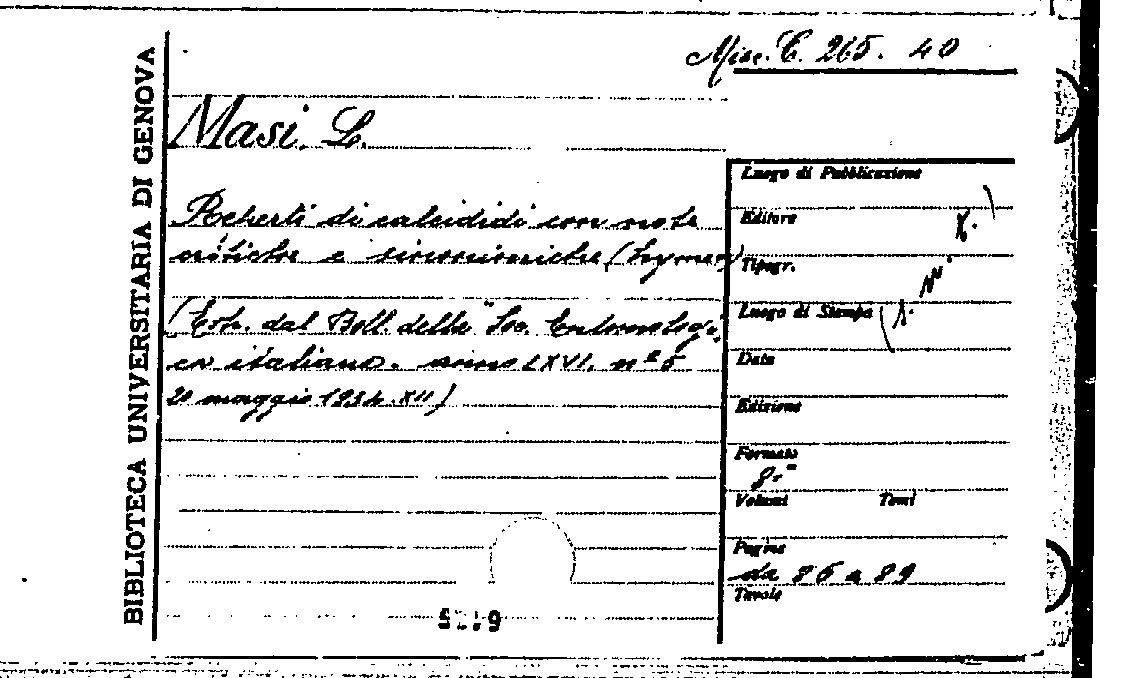 BIBLIOTECA UNIVERSITARIA DI GENOVA
Misc. C. 265. 40
Masi L.
Reperti di calcididi con note
critiche e sinonimiche (Hymen)
(Estr. dal Boll. della "Soc. Entomologi
ca italiana. anno LXVI. nº 5
20 maggio 1934. XII)
Luogo di Pubblicazione
Editore
Tipogr.
Luogo di Stampa
Data
Edizione
Formato
8.º
Volumi Tomi
Pagine
da 86 a 89
Tavole